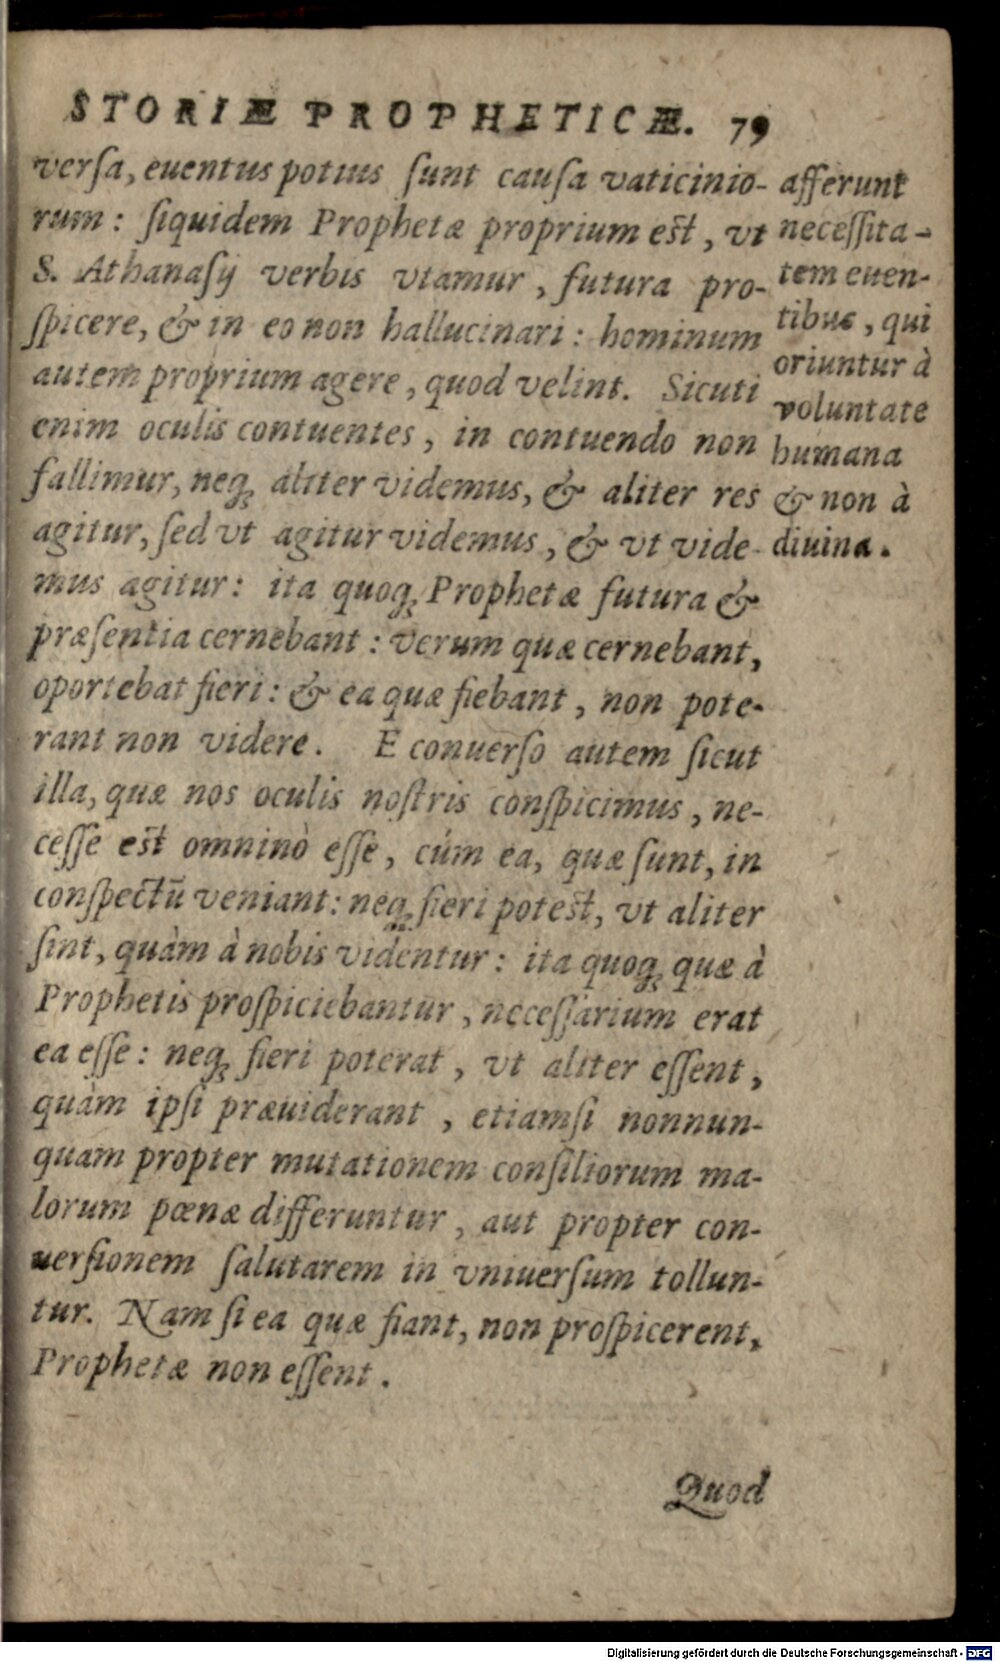 STORIÆ PROPHETICÆ. 79
versa, euentus potius sunt causa vaticinio-
rum: siquidem Prophetæ proprium est, vt
S. Athanasij verbis vtamur, futura pro-
spicere, & in eo non hallucinari: hominum
autem proprium agere, quod velint. Sicuti
enim oculis contuentes, in contuendo non
fallimur, neq; aliter videmus, & aliter res
agitur, sed vt agitur videmus, & vt vide-
mus agitur: ita quoq; Prophetæ futura &
præsentia cernebant: verum quæ cernebant,
oportebat fieri: & ea quæ fiebant, non pote-
rant non videre. E conuerso autem sicut
illa, quæ nos oculis nostris conspicimus, ne-
cesse est omninò esse, cúm ea, quæ sunt, in
conspectū veniant: neq; fieri potest, vt aliter
sint, quàm à nobis videntur: ita quoq; quæ à
Prophetis prospiciebantur, necessarium erat
ea esse: neq; fieri poterat, vt aliter essent,
quàm ipsi præuiderant, etiamsi nonnun-
quam propter mutationem consiliorum ma-
lorum pœnæ differuntur, aut propter con-
uersionem salutarem in vniuersum tollun-
tur. Nam si ea quæ fiant, non prospicerent,
Prophetæ non essent.
afferunt
necessita-
tem euen-
tibus, qui
oriuntur à
voluntate
humana
& non à
diuina.
Quod
Digitalisierung gefördert durch die Deutsche Forschungsgemeinschaft - DFG